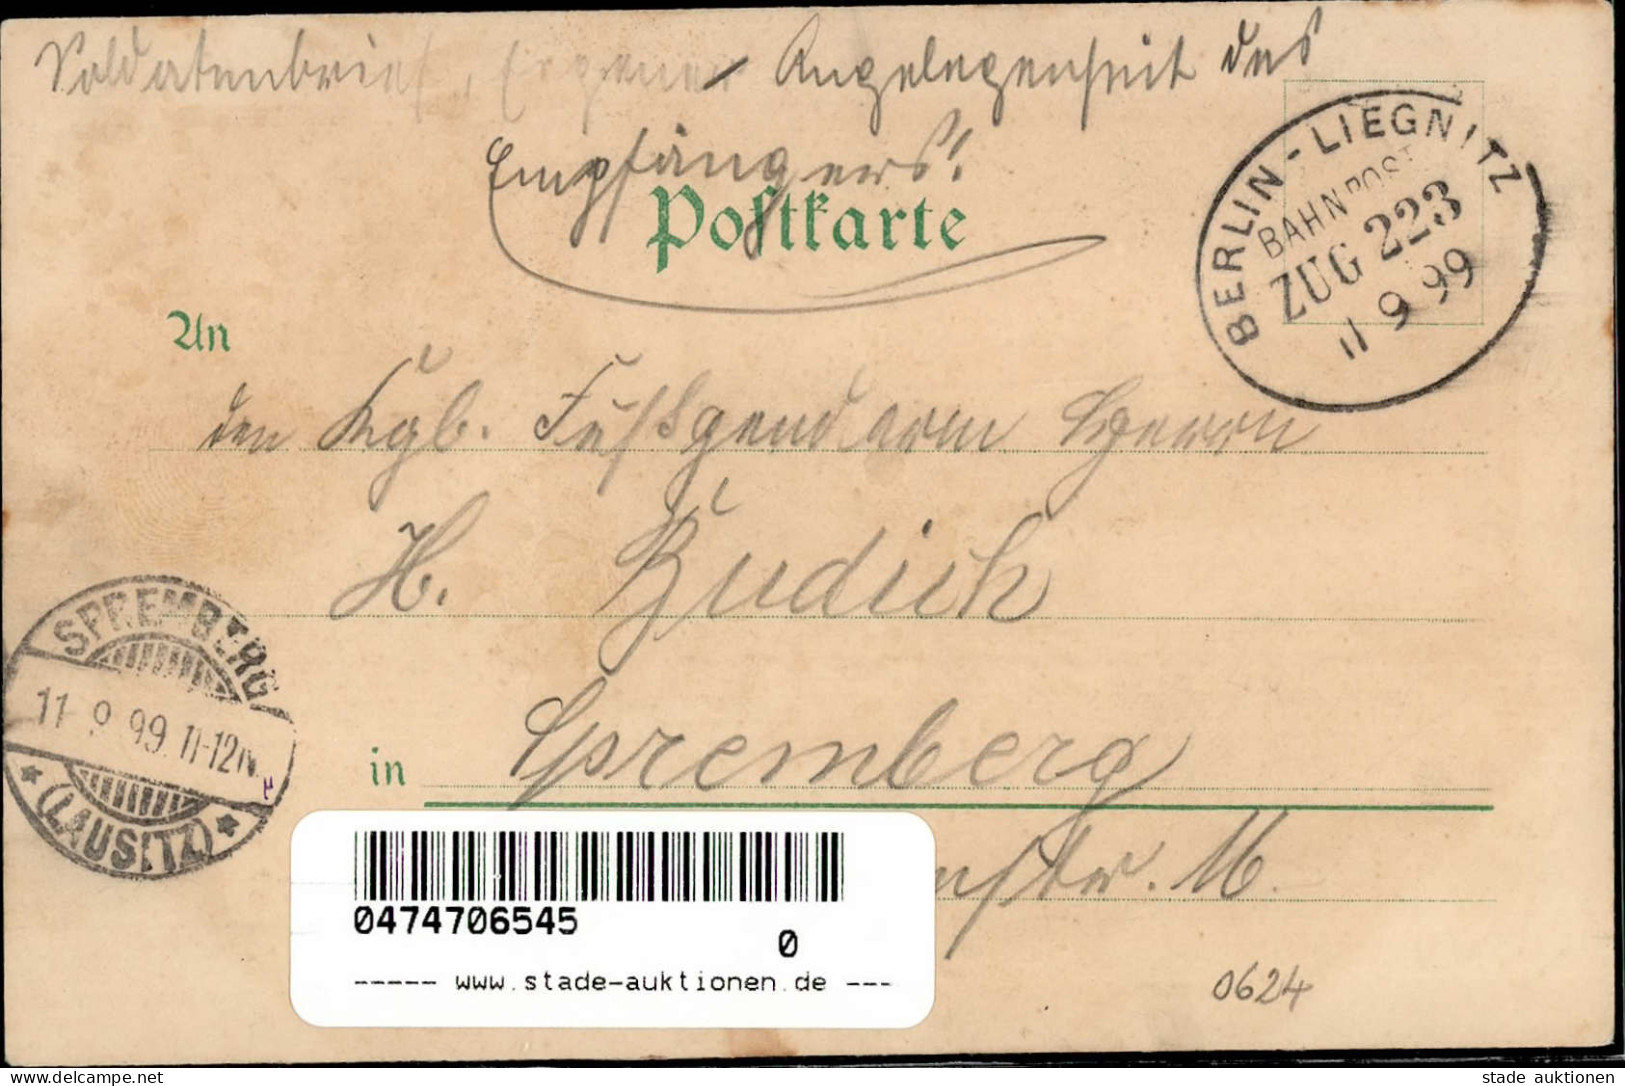 Soldatenbrief, Eigene Angelegenheit des
Empfängers!
Postkarte
BERLIN - LIEGNITZ
BAHNPOST
ZUG 223
11 9 99
An
den Kgl. Fußgendarm Herrn
H. Budich
SPREMBERG
11 9 99. 11-12N.
(LAUSITZ)
in Spremberg
str. 16.
0474706545
0
----- www.stade-auktionen.de ---
0624
stade auktionen
www.delcampe.net